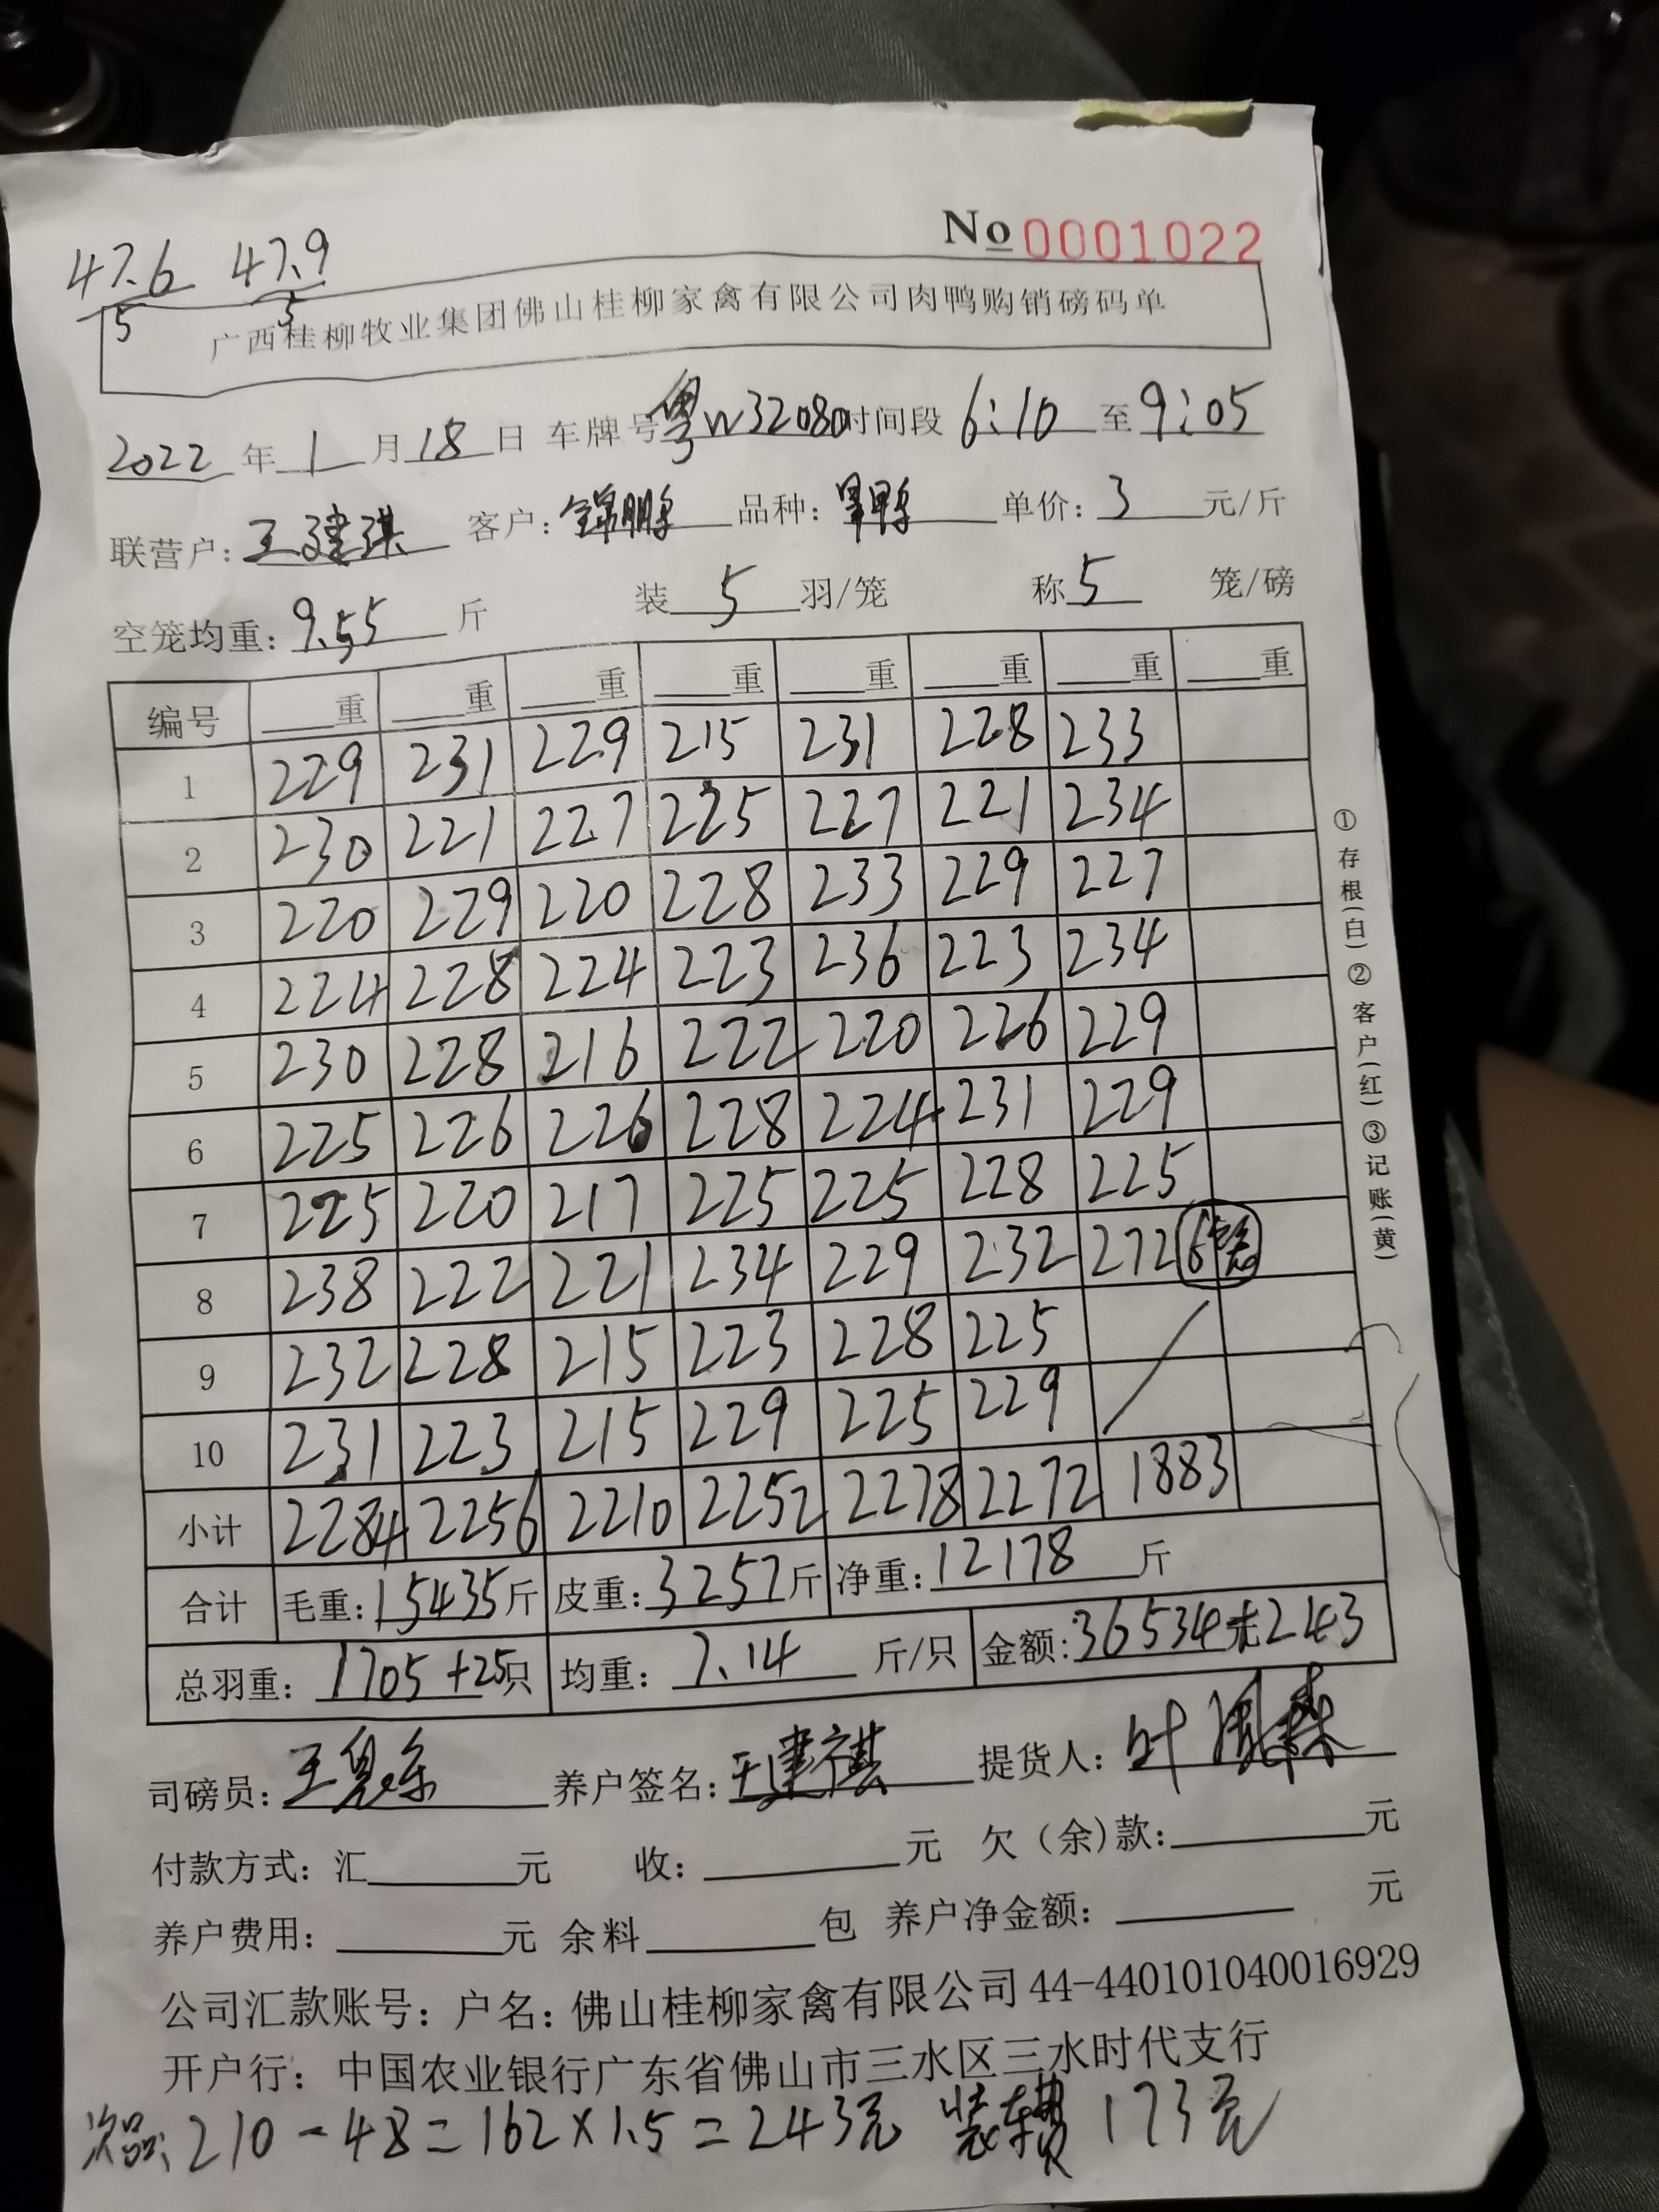 No 0001022
47.6/5 47.9/5
广西桂柳牧业集团佛山桂柳家禽有限公司肉鸭购销磅码单
2022年1月18日 车牌号粤W32080 时间段6:10至9:05
联营户:王建祺 客户:锦鹏 品种: 单价:3元/斤
空笼均重:9.55斤 装5羽/笼 称5笼/磅
编号 重 重 重 重 重 重 重 重
1 229 231 229 215 231 228 233
2 230 221 227 225 227 221 234
3 220 229 220 228 233 229 227
4 224 228 224 223 236 223 234
5 230 228 216 222 220 226 229
6 225 226 226 228 224 231 229
7 225 220 217 225 225 228 225
8 238 222 221 234 229 232 272 6笼
9 232 228 215 223 228 225
10 231 223 215 229 225 229
小计 2284 2256 2210 2252 2278 2272 1883
合计 毛重:15435斤 皮重:3257斤 净重:12178斤
总羽重:1705+25只 均重:7.14斤/只 金额:36534元 243
司磅员:王 养户签名:王建祺 提货人:叶
付款方式:汇 元 收: 元 欠(余)款: 元
养户费用: 元 余料 包 养户净金额: 元
公司汇款账号:户名:佛山桂柳家禽有限公司44-440101040016929
开户行:中国农业银行广东省佛山市三水区三水时代支行
次品:210-48=162×1.5=243元 装车费173元
①存根(白)②客户(红)③记账(黄)